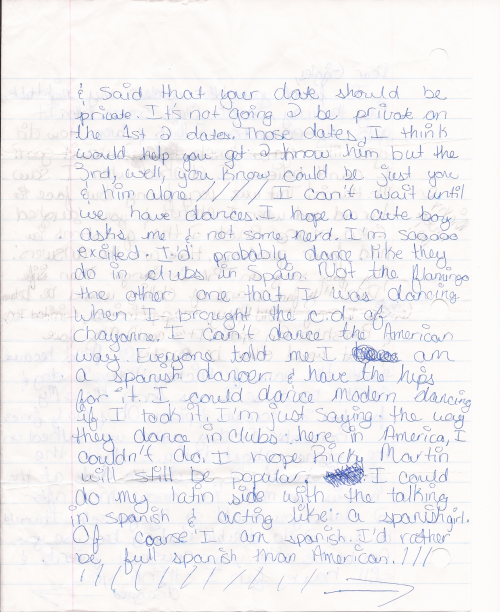 & said that your date should be
private. It's not going 2 be private on
the 1st 2 dates. Those dates, I think
would help you get 2 know him but the
3rd, well, you know could be just you
& him alone. ///// I can't wait until
we have dances. I hope a cute boy
asks me & not some nerd. I'm sooooo
excited. I'd probably dance like they
do in clubs in Spain. Not the flamingo
the other one that I was dancing
when I brought the c.d. of
Chayanne. I can't dance the American
way. Everyone told me I am
a spanish dancer & have the hips
for it. I could dance modern dancing
if I took it. I'm just saying the way
they dance in clubs here in America, I
couldn't do. I hope Ricky Martin
will still be popular. I could
do my latin side with the talking
in spanish & acting like a spanish girl.
Of coarse I am spanish. I'd rather
be full spanish than American. ///